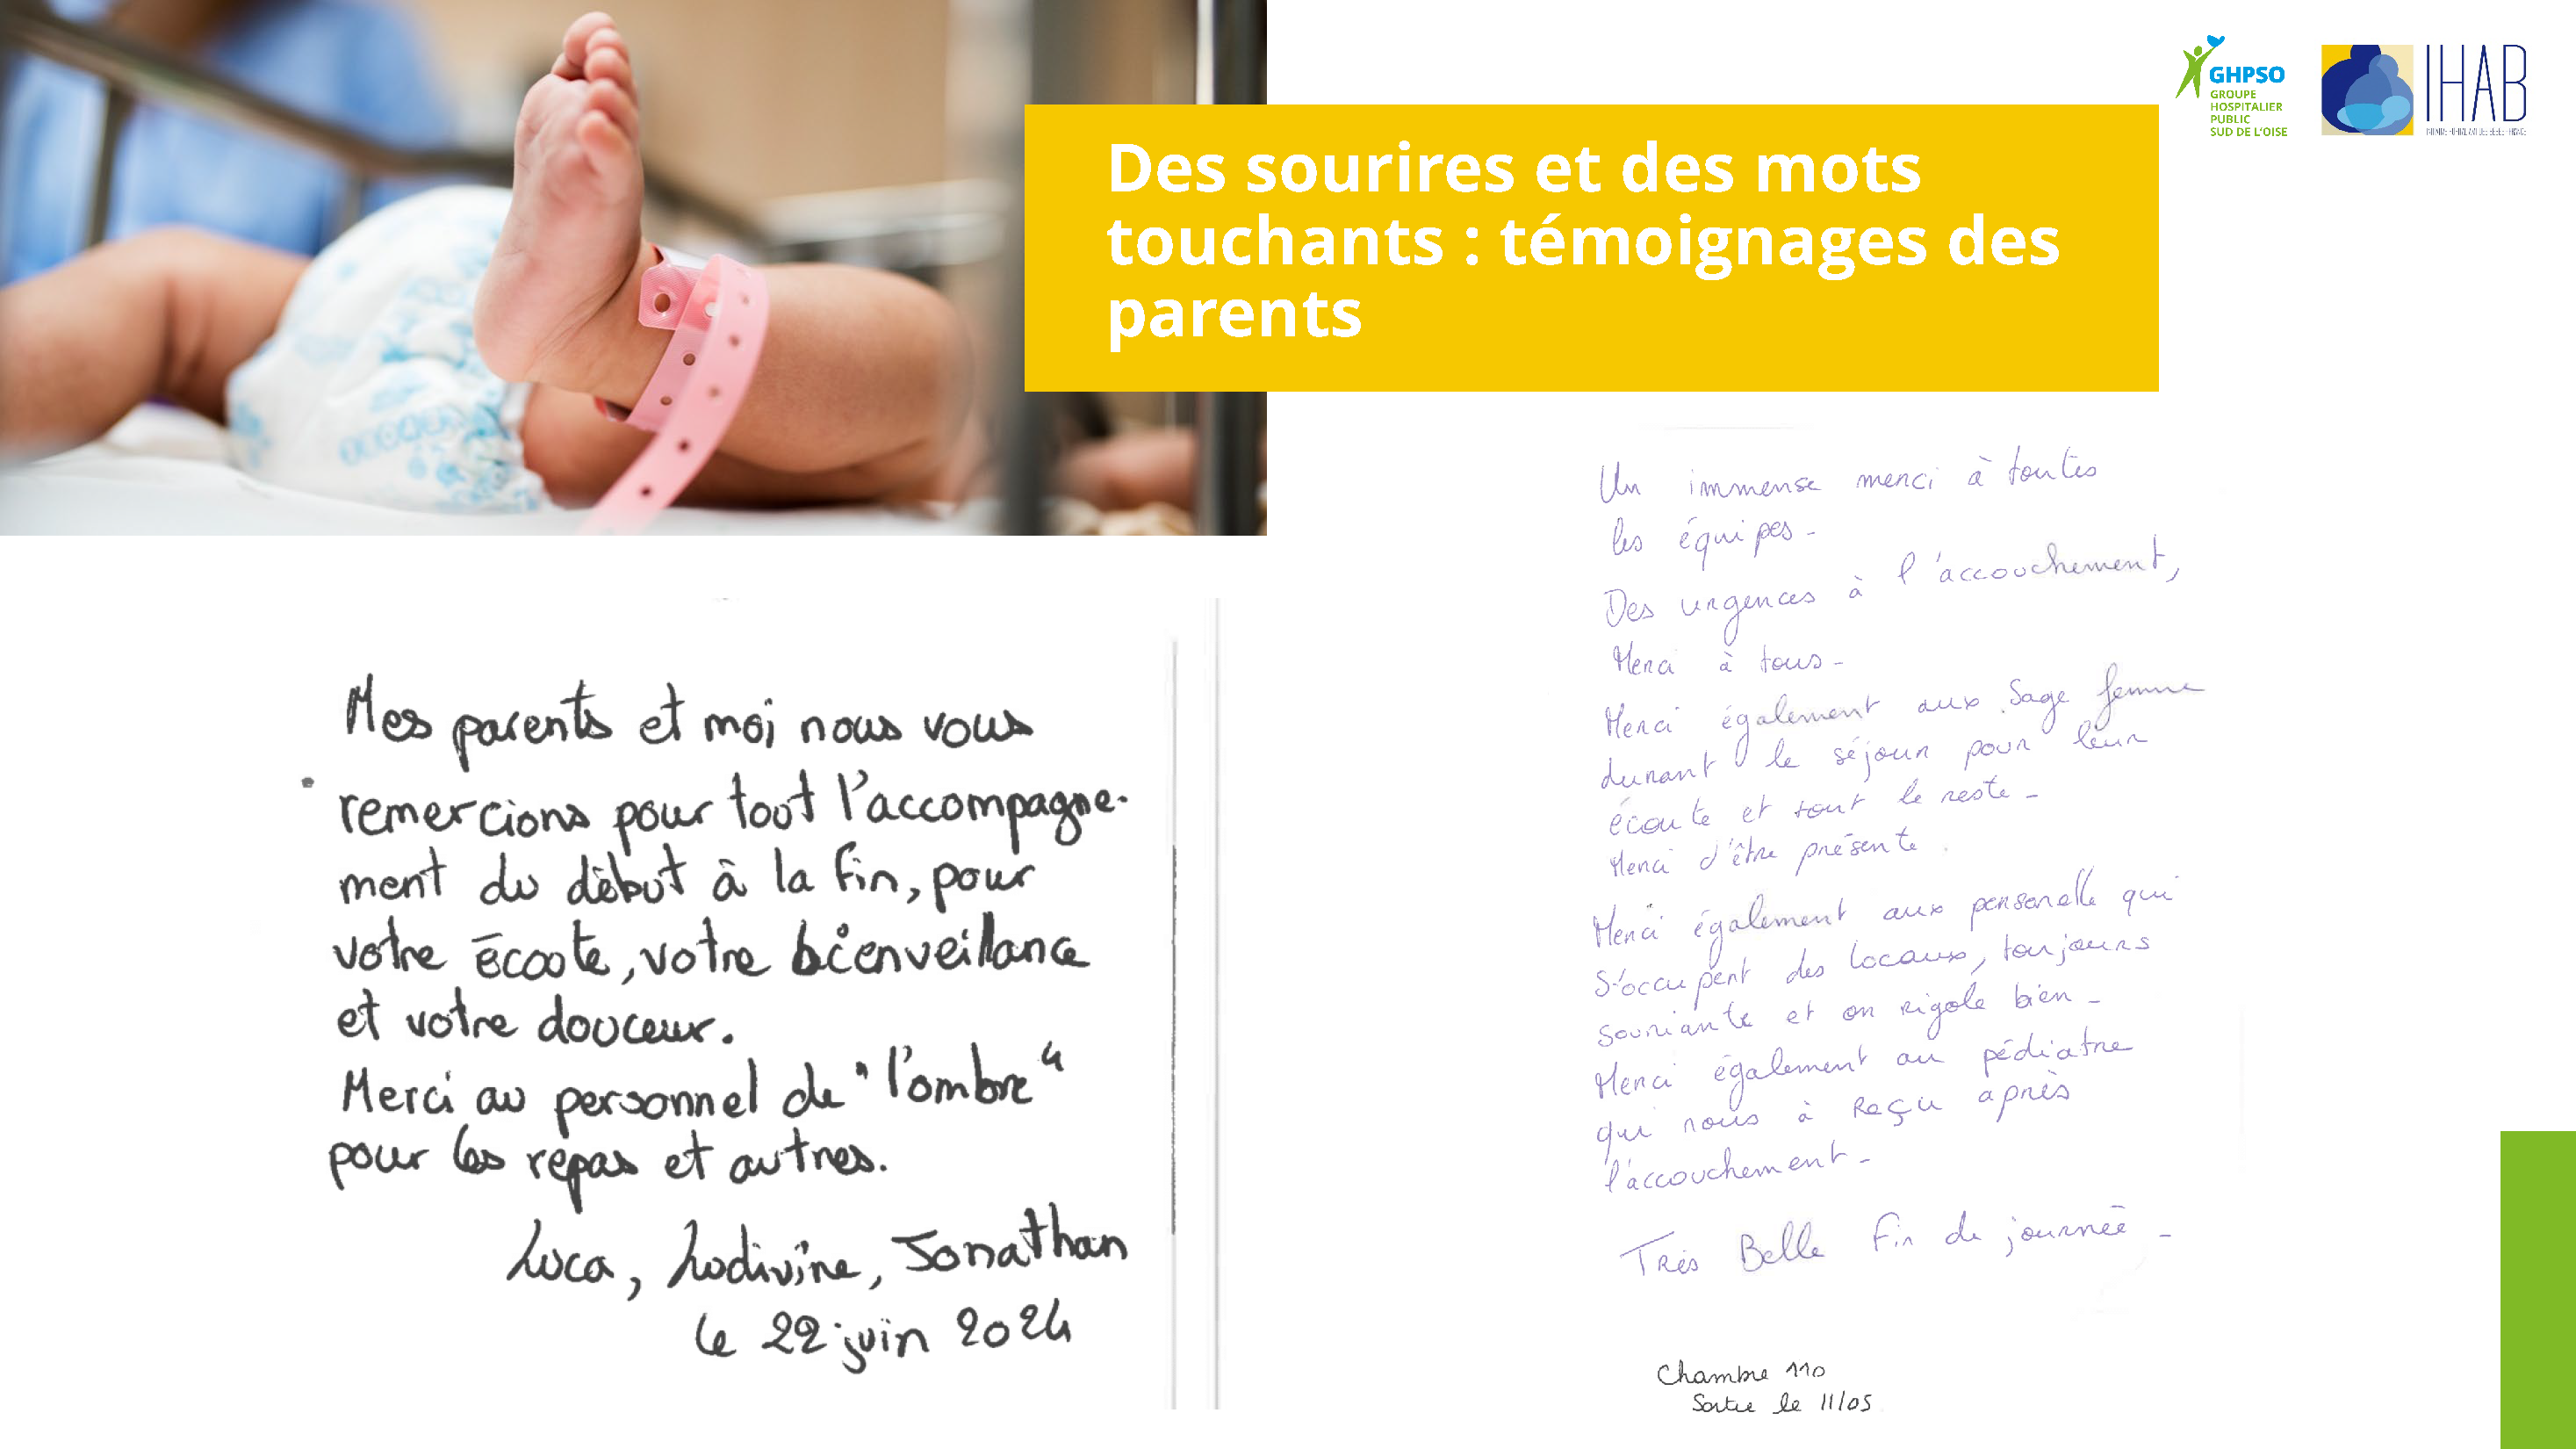 Des sourires et des mots
touchants : témoignages des
parents
GHPSO
GROUPE
HOSPITALIER
PUBLIC
SUD DE L'OISE
IHAB
Mes parents et moi nous vous
remercions pour tout l'accompagne-
ment du début à la fin, pour
votre écoute, votre bienveillance
et votre douceur.
Merci au personnel de "l'ombre"
pour les repas et autres.
Luca, Ludivine, Jonathan
le 22 juin 2024
Un immense merci à toutes
les équipes -
Des urgences à l'accouchement,
Merci à tous -
Merci également aux Sage femme
durant le séjour pour leur
écoute et tout le reste -
Merci d'être présente.
Merci également aux personelle qui
s'occupent des locaux, toujours
souriante et on rigole bien -
Merci également au pédiatre
qui nous à Reçu après
l'accouchement -
Très Belle Fin de journée -
Chambre 110
Sortie le 11/05